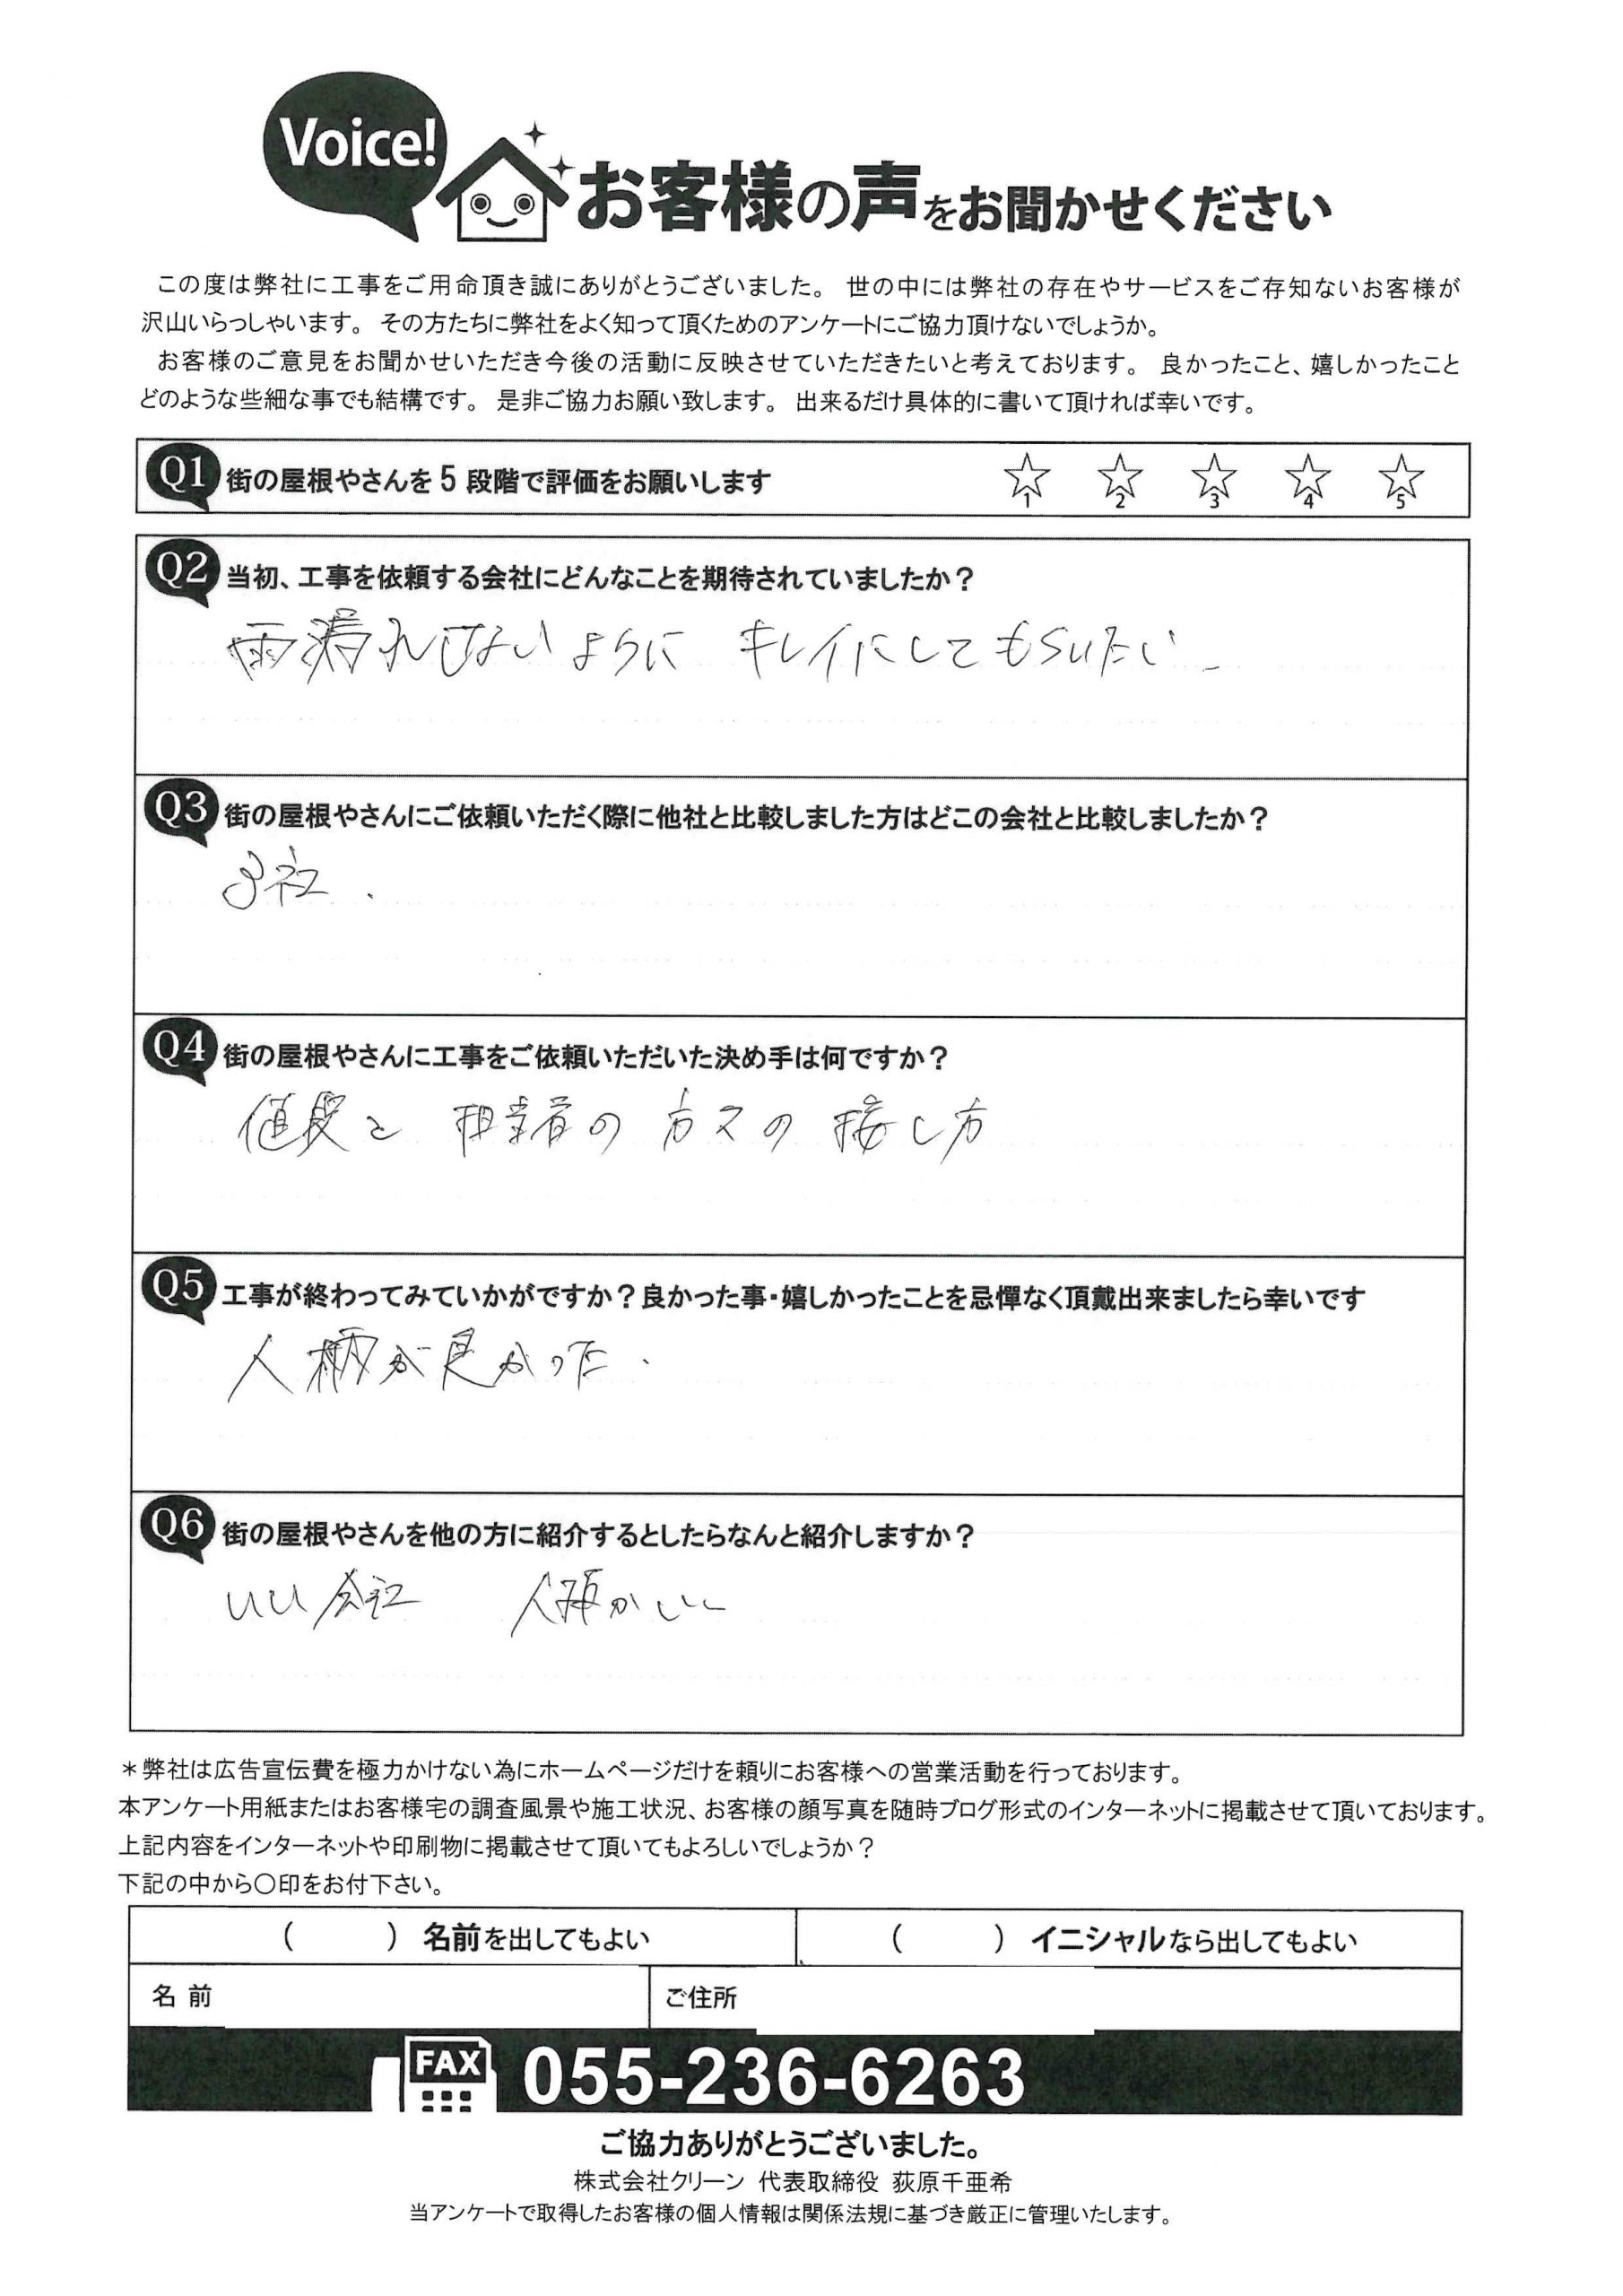 Voice!
お客様の声をお聞かせください
この度は弊社に工事をご用命頂き誠にありがとうございました。 世の中には弊社の存在やサービスをご存知ないお客様が
沢山いらっしゃいます。 その方たちに弊社をよく知って頂くためのアンケートにご協力頂けないでしょうか。
お客様のご意見をお聞かせいただき今後の活動に反映させていただきたいと考えております。 良かったこと、嬉しかったこと
どのような些細な事でも結構です。 是非ご協力お願い致します。 出来るだけ具体的に書いて頂ければ幸いです。
Q1 街の屋根やさんを 5 段階で評価をお願いします ☆1 ☆2 ☆3 ☆4 ☆5
Q2 当初、工事を依頼する会社にどんなことを期待されていましたか？
雨漏れしないように キレイにしてもらいたい
Q3 街の屋根やさんにご依頼いただく際に他社と比較しました方はどこの会社と比較しましたか？
3社.
Q4 街の屋根やさんに工事をご依頼いただいた決め手は何ですか？
値段と 担当者の 方々の 接し方
Q5 工事が終わってみていかがですか？良かった事・嬉しかったことを忌憚なく頂戴出来ましたら幸いです
人柄が良かった.
Q6 街の屋根やさんを他の方に紹介するとしたらなんと紹介しますか？
いい会社 人柄がいい
＊弊社は広告宣伝費を極力かけない為にホームページだけを頼りにお客様への営業活動を行っております。
本アンケート用紙またはお客様宅の調査風景や施工状況、お客様の顔写真を随時ブログ形式のインターネットに掲載させて頂いております。
上記内容をインターネットや印刷物に掲載させて頂いてもよろしいでしょうか？
下記の中から〇印をお付下さい。
（　　　）名前を出してもよい （　　　）イニシャルなら出してもよい
名 前 ご住所
FAX 055-236-6263
ご協力ありがとうございました。
株式会社クリーン 代表取締役 荻原千亜希
当アンケートで取得したお客様の個人情報は関係法規に基づき厳正に管理いたします。